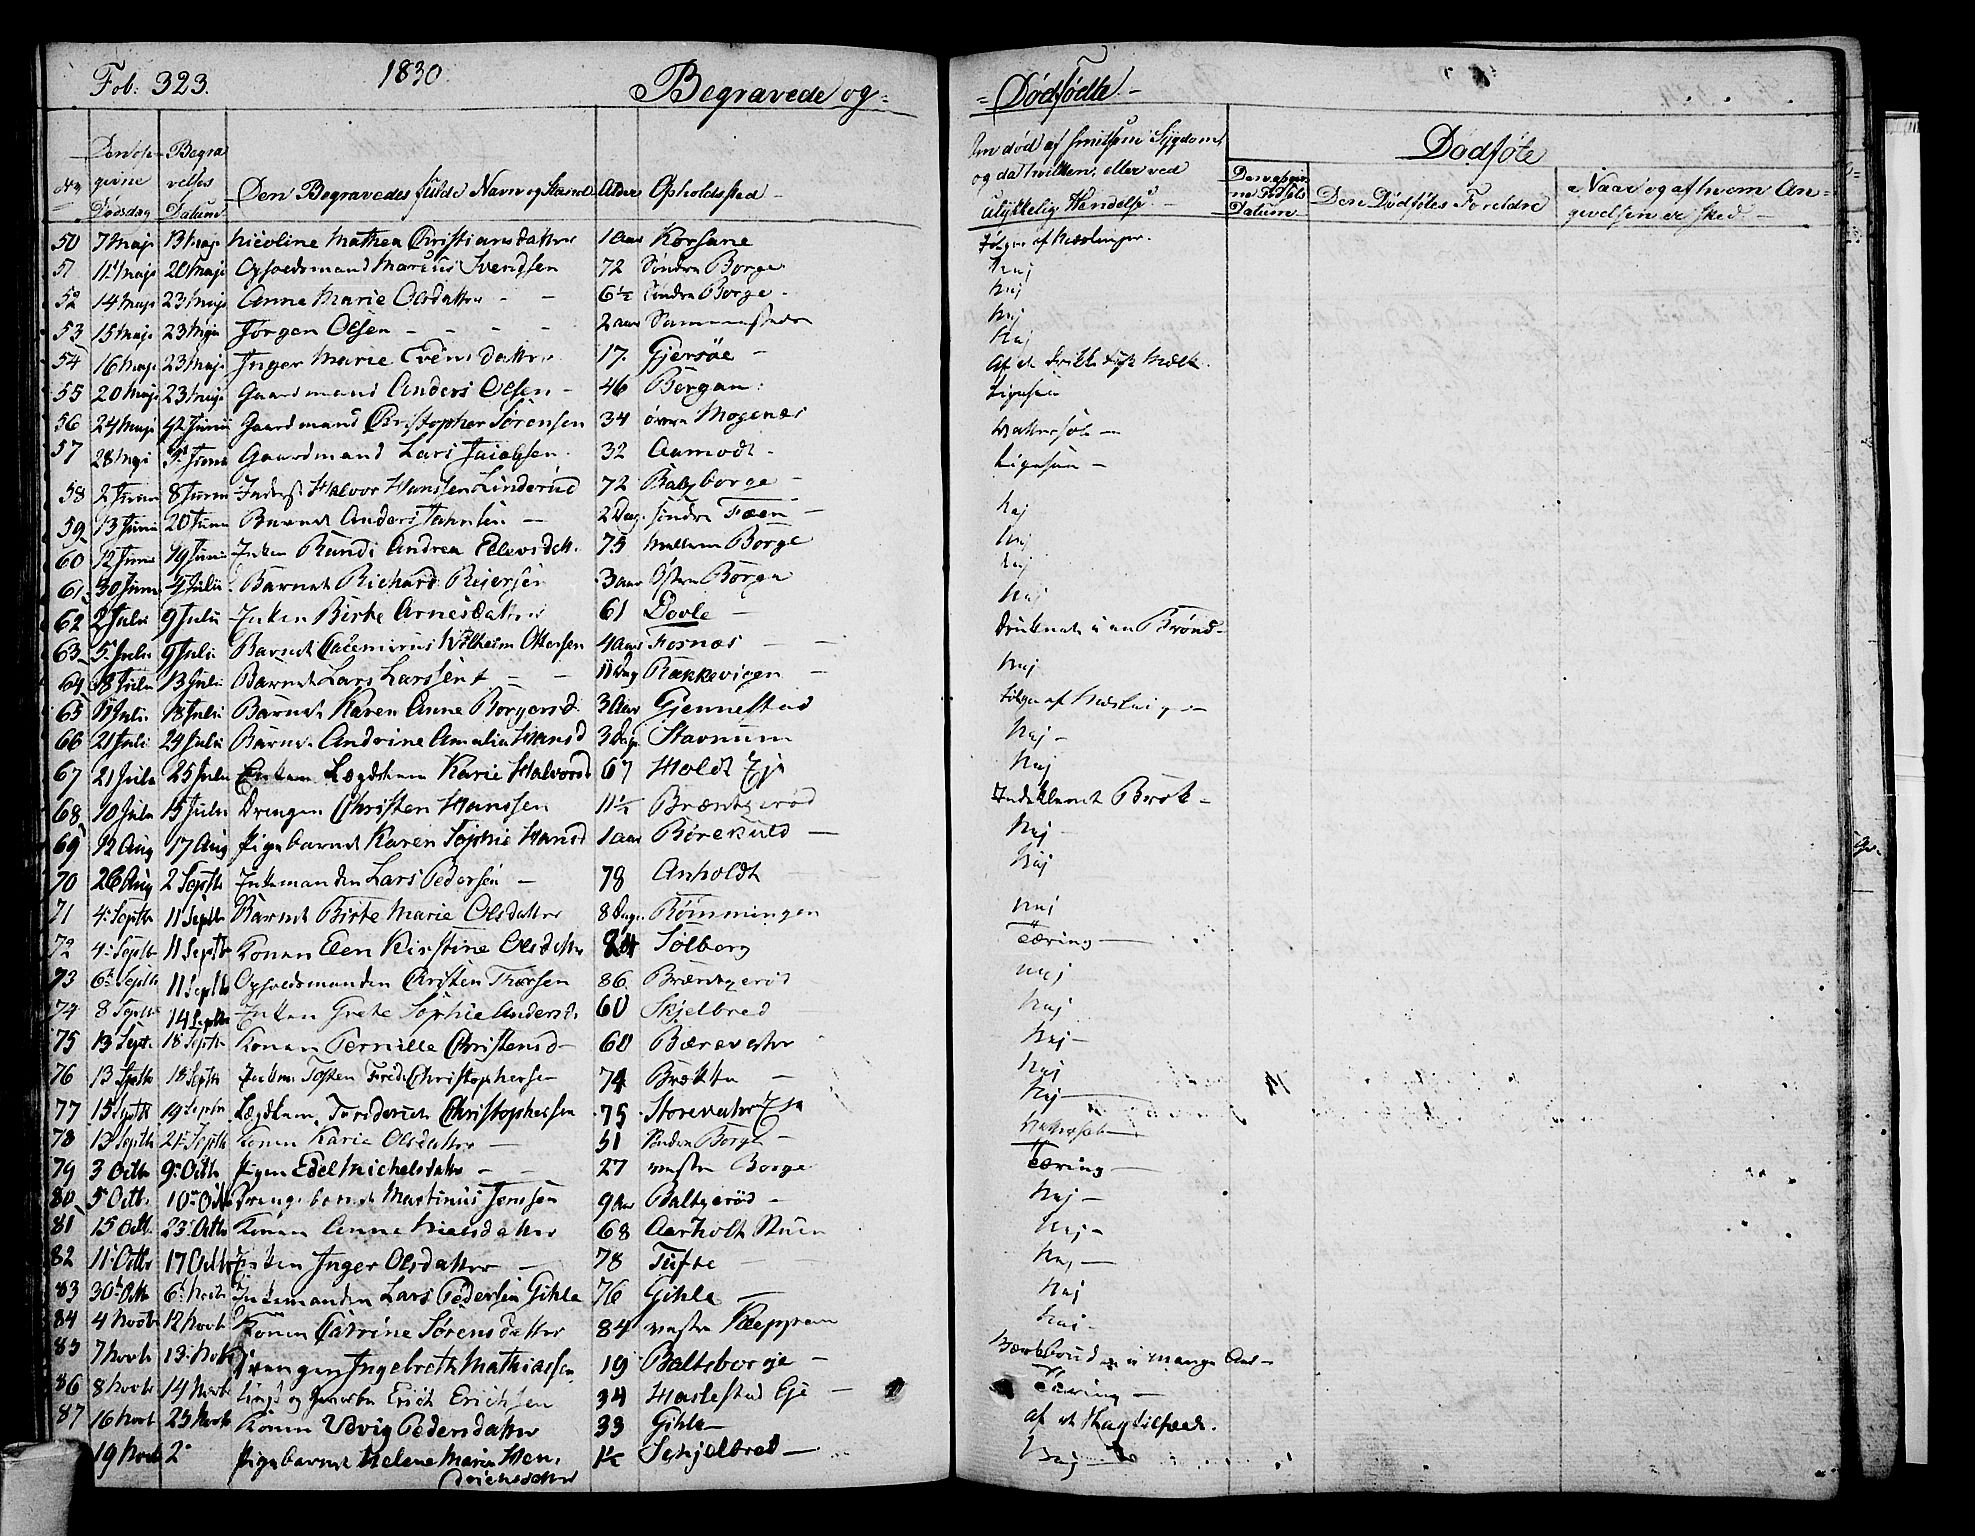 Fol: 323.
1830
Begravede og
Dødfødte
No
Den opgivne Dødsdag
Begravelses Datum
Den Begravedes fulde Navn og Stand
Alder
Opholdssted
Om død af smitsom Sygdom, og da hvilken, eller ved ulykkelig Hændelse
Dødføte
Datum
Den Dødføtes Foreldre
Naar og af hvem Angivelsen er sked
50 7 Maji 13 Maji Nicoline Mathea Christiansdatter 1 Aar Korsane Følger af Mæslinger.
51 11 Maji 20 Maji Opsoedsmand Marcus Svendsen 72 Søndre Borge Nej
52 14 Maji 23 Maji Anne Marie Olsdatter 6½ Søndre Borge Nej
53 15 Maji 23 Maji Jørgen Olsen 2 Aar Sammesteds Nej
54 16 Maji 23 Maji Inger Marie Evensdatter 17. Gjersøe Nej
55 20 Maji 23 Maji Gaardmand Anders Olsen 46 Borgan Af at drikke sysk Mælk.
56 24 Maji Junii Gaardmand Christopher Sørensen 34 øvre Mogenæs Ligesaa
57 28 Maji Junii Gaardmand Lars Jacobsen 32 Aamodt Vattersot
58 2 Junii 8 Junii Inderst Halvor Hanssen Linderud 72 Balzborge Ligesaa
59 13 Junii 20 Junii Barnet Anders 2 Dag. søndre Foen Nej
60 12 Junii 19 Junii Enken Randi Andrea Ellevsdatt. 75 Mellem Borge Nej
61 30 Junii 4 Julii Barnet Richard Reiersen 3 Aar Østre Borge Nej
62 2 Julii 9 Julii Enken Birte Arnesdatter 61 Dovle Nej
63 5 Julii 9 Julii Barnet Casemirus Wilhelm Ottersen 4 Aar Fornæs Druknet i en Brønd
64 8 Julii 13 Julii Barnet Lars Larssen 11 Dag Rakkevigen Nej
65 11 Julii 18 Julii Barnet Karen Anne Borgersd. 3 Aar Gjennestad Følger af Mæsling
66 21 Julii 24 Julii Barnet Andrine Amalia Hansd 3 Dage Stavnum Nej
67 21 Julii 25 Julii Enken Lægdslem Karie Halvorsd 67 Holdt Eje Nej
68 10 Julii 15 Julii Drengen Christen Hanssen 11½ Bræntgerød Indeklemt Brok
69 12 Aug 17 Aug Pigebarnet Karen Sophie Hansd 1 Aar Børekuld Nej
70 26 Aug 2 Septb Enkemanden Lars Pedersen 78 Anholdt Nej
71 4 Septb 11 Septb Barnet Birte Marie Olsdatter 8 Dage Rømmingen Nej
72 4 Septb 11 Septb Konen Elen Kirstine Olsdatter 84 Solberg Tæring
73 6 Septb 11 Septb Opsoedsmanden Christen Thorsen 86. Bræntgerød Nej
74 8 Septb 14 Septbr Enken Grete Sophie Andersd 60 Skjelbred Nej
75 13 Sept. 18 Septb Konen Pernille Christensd 60 Bærevester Nej
76 13 Septb 18 Septb Christophersen 74 Brekke Nej
77 15 Septb 19 Septbr Lægdslem Christophersen 75 Storevester Eje Nej
78 13 Septb 21 Septb Konen Karie Olsdatter 51 Søndre Borge Vattersot
79 3 Octb 9 Octb Pigen Edel Michelsdatter 27 vestre Borge Tæring
80 5 Octb. 10 Octb Drengebarnet Martinus Jenssen 9 Aar Baltgerød Nej
81 15 Octb. 23 Octb Konen Anne Nielsdatter 68 Aarholt Stuen Nej
82 11 Octbr 17 Octbr Enken Inger Olsdatter 78 Tufte Nej
83 30 Octb 6 Novbr Enkemanden Lars Pedersen Gihle 76 Gihle Nej
84 4 Novb 12 Novb Konen Catrine Sørensdatter 84 vestre Kleppan Nej
85 7 Novb 13 Novb Drengen Ingebreth Mathiassen 19 Baltsborge Værkbrud i mange Aar
86 8 Novb 14 Novb Erich Erichsen 34 Haslestad Eje Tæring
87 16 Novb 25 Novb Konen Edvig Pedersdatter 33 Gihle af et Slagtilfælde.
19 Novb 2 Pigebarnet Helene Marie Hendrichsdatter 1½ Schjelbred Nej